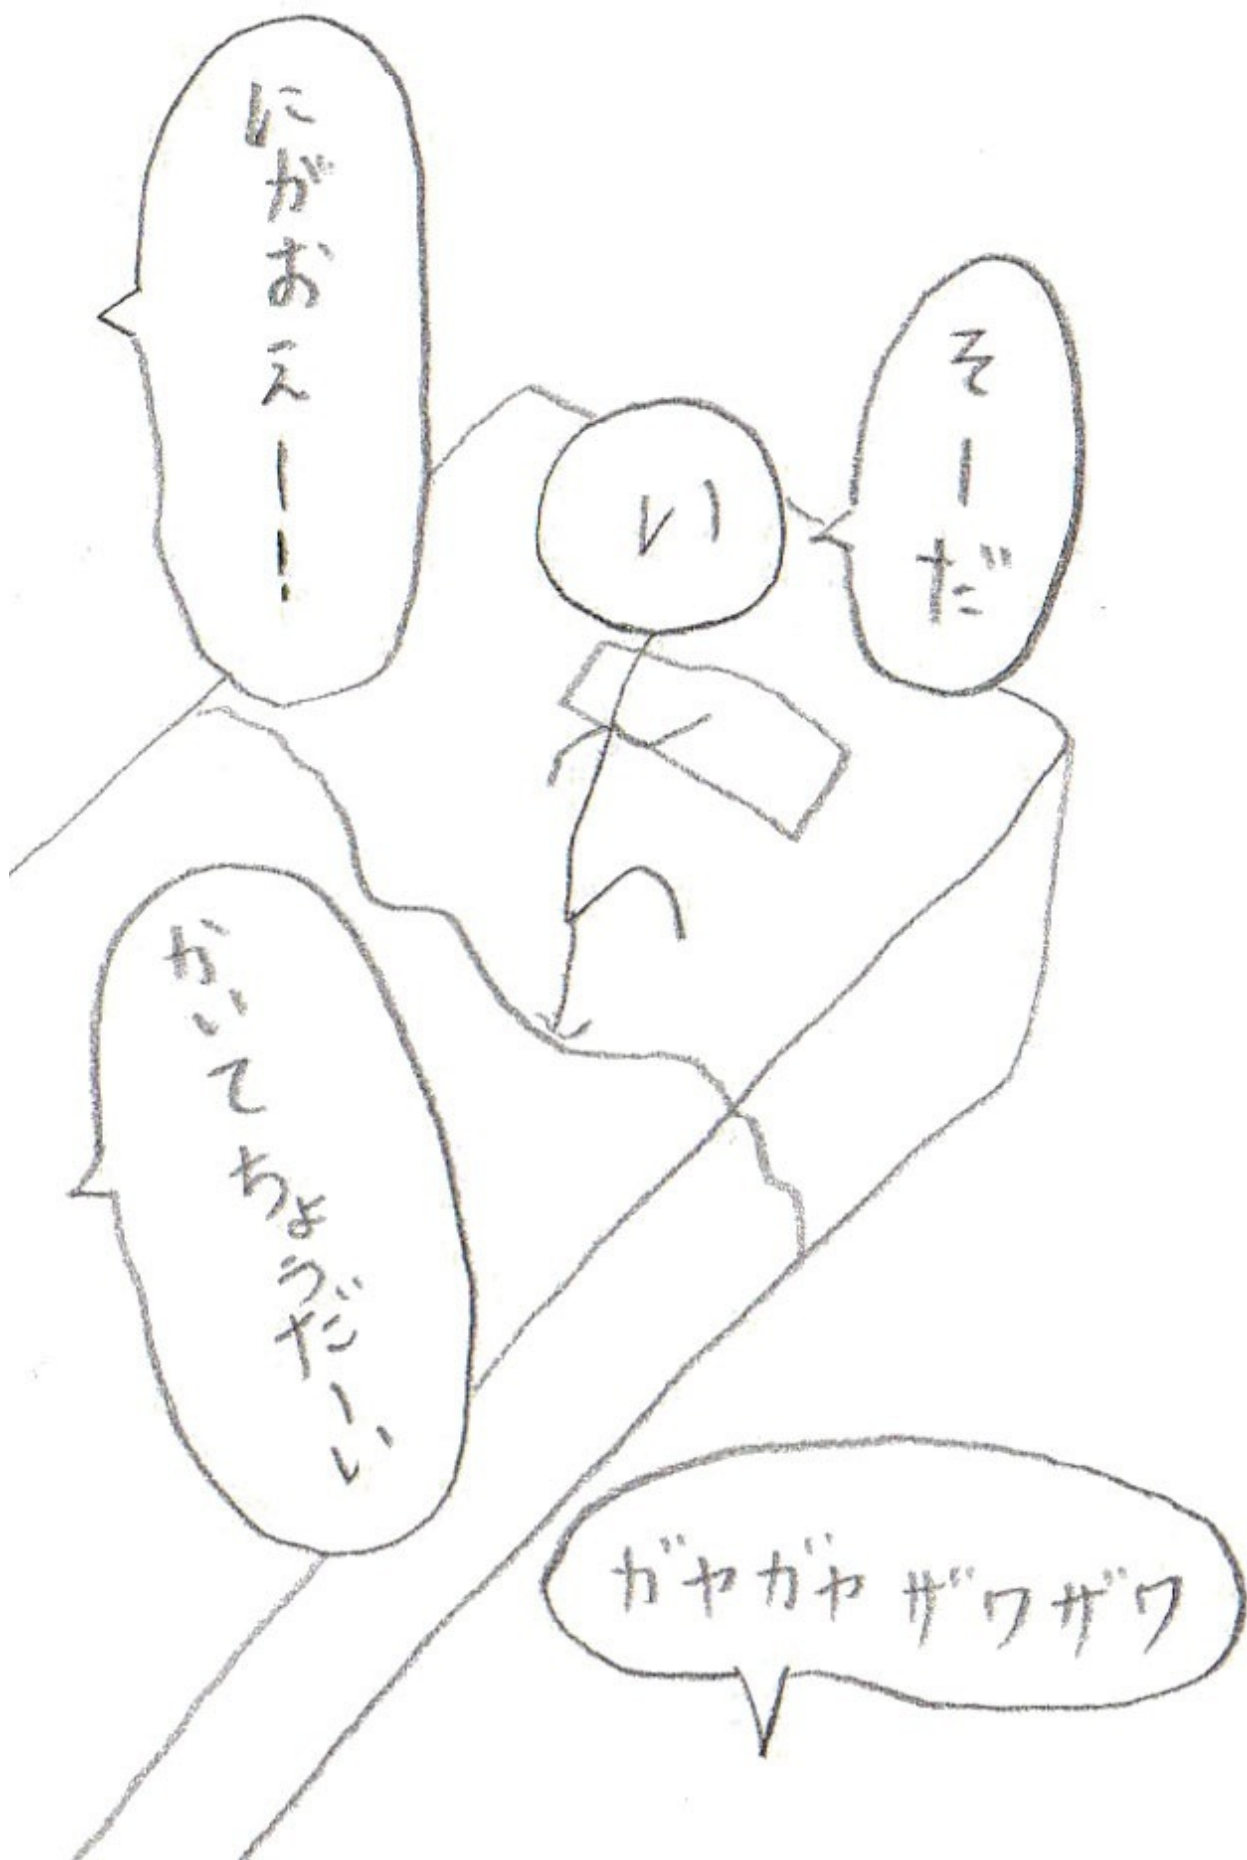 そーだ
い
にがおえー!
かいてちょうだーい
ガヤガヤ ザワザワ